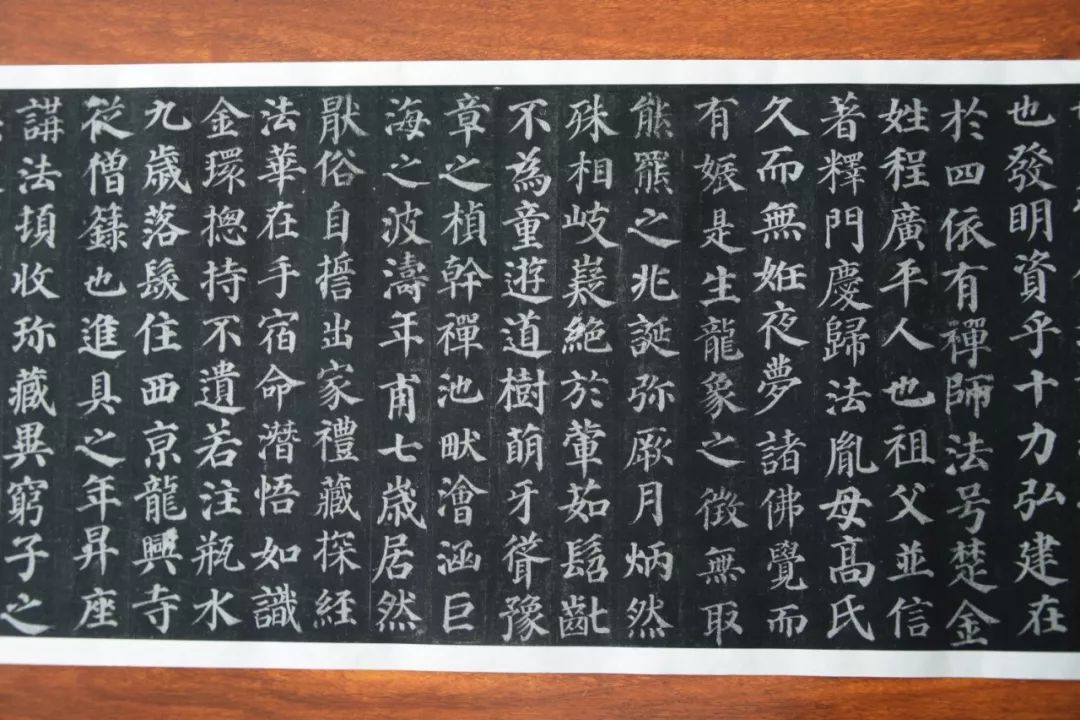 也發明資乎十力弘建在
於四依有禪師法号楚金
姓程廣平人也祖父並信
著釋門慶歸法胤母髙氏
久而無姙夜夢諸佛覺而
有娠是生龍象之徵無取
熊羆之兆誕弥厥月炳然
殊相岐嶷絕於葷茹髫齔
不為童遊道樹萌牙聳豫
章之楨幹禪池畎澮涵巨
海之波濤年甫七歲居然
猒俗自誓出家禮藏探經
法華在手宿命潛悟如識
金環揔持不遺若注瓶水
九歲落髮住西京龍興寺
從僧籙也進具之年昇座
講法頓收珎藏異窮子之